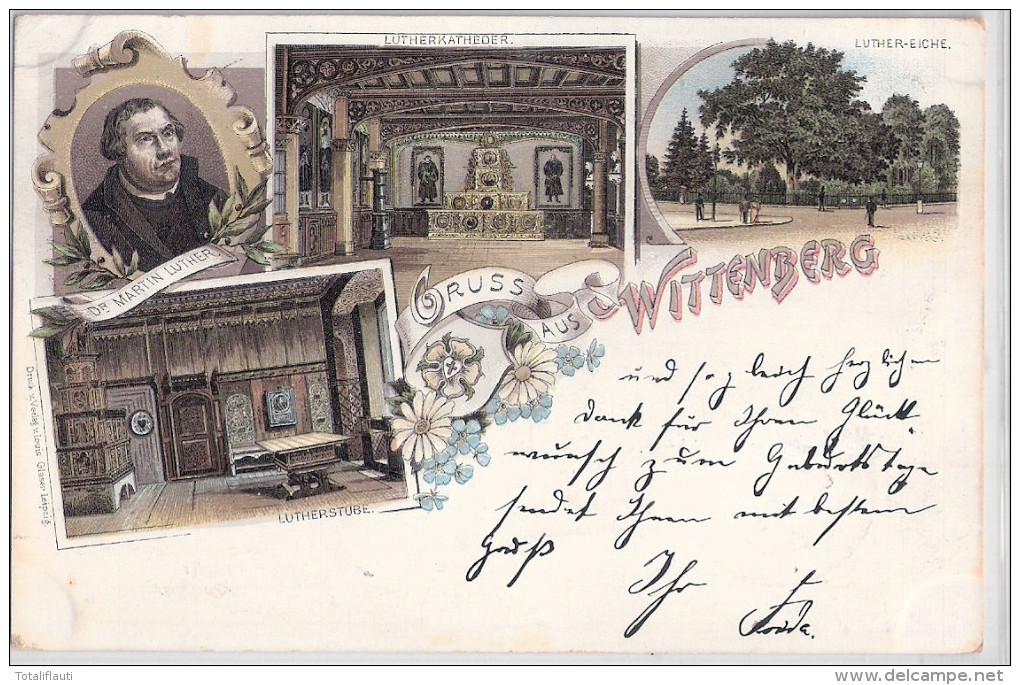 LUTHERKATHEDER.
LUTHER-EICHE.
DR MARTIN LUTHER.
GRUSS
AUS
WITTENBERG
LUTHERSTUBE.
Druck u. Verlag v. Louis Glaser Leipzig.
und sogleich herzlichen
Dank für Ihren Glück
wunsch zum Geburtstage
sendet Ihnen mit bestem
Gruß
Ihr
Totaliflauti
www.delcampe.net